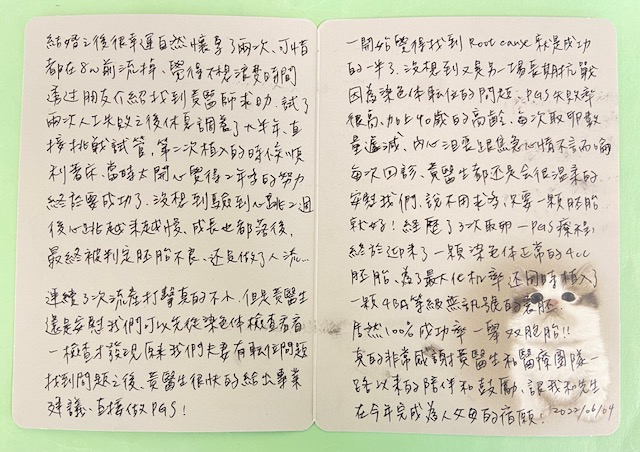 結婚之後很幸運自然懷孕了兩次、可惜
都在8w前流掉、覺得不想浪費時間
透過朋友介紹找到黃醫師求助、試了
兩次人工失敗之後休息調養了大半年、直
接挑戰試管、第二次植入的時候順
利著床、當時太開心覺得2年多的努力
終於要成功了、沒想到驗到心跳2週
後心跳越來越慢、成長也都落後、
最終被判定胚胎不良、還是做了人流...
連續了次流產打擊真的不小、但是黃醫生
還是安慰我們可以先從染色體檢查看看
一檢查才發現原來我們夫妻有轉位問題
找到問題之後、黃醫生很快的給出專業
建議、直接做PGS!
一開始覺得找到 Root cause 就是成功
的一半了、沒想到又是另一場長期抗戰
因為染色體轉位的問題、PGS失敗率
很高、加上40歲的高齡、每次取卵數
量遞減、內心沮喪跟焦急心情不言而喻
每次回診、黃醫生都還是會很溫柔的
安慰我們、說不用求多、只要一顆胚胎
就好! 經歷了3次取卵—PGS療程、
終於迎來了一顆染色體正常的4CC
胚胎、為了最大化機率、還同時植入了
一顆4BB等級無訊號的囊胚
居然100%成功率一舉雙胞胎!!
真的非常感謝黃醫生和醫療團隊一
路以來的陪伴和鼓勵、讓我和先生
在今年完成為人父母的宿願! 2022/06/04